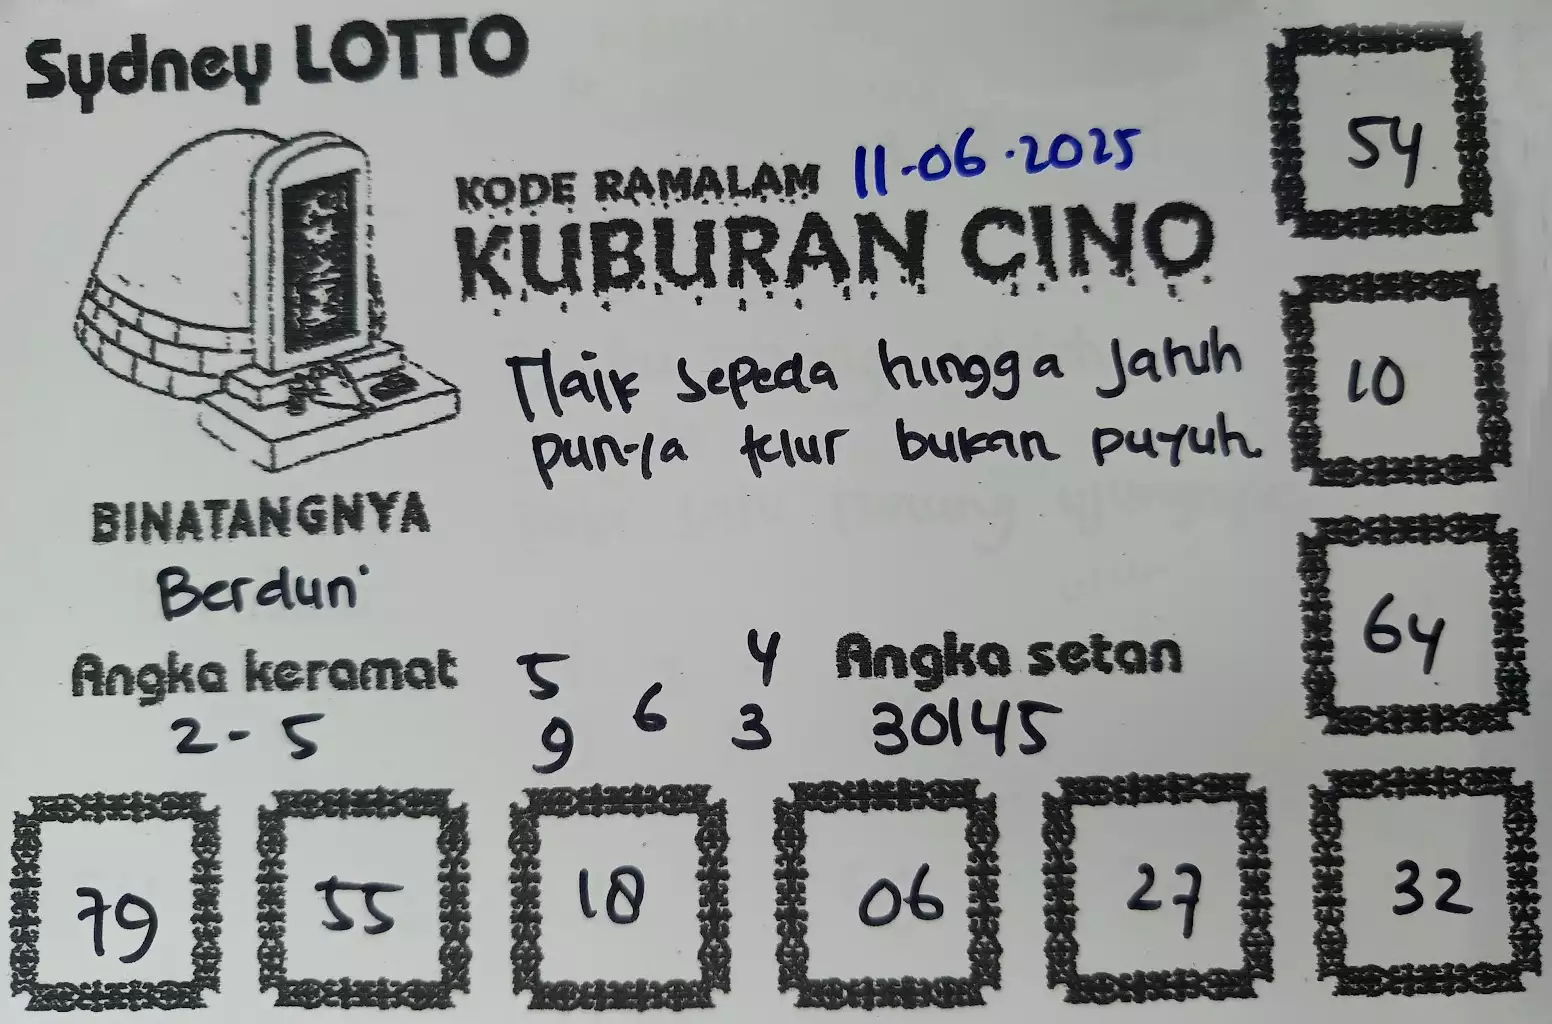 Sydney LOTTO
KODE RAMALAM 11-06-2025
KUBURAN CINO
Naik sepeda hingga Jatuh
punya telur bukan puyuh
BINATANGNYA
Berduri
Angka keramat
2-5
5 4
6
9 3
Angka setan
30145
54
10
64
79 55 18 06 27 32